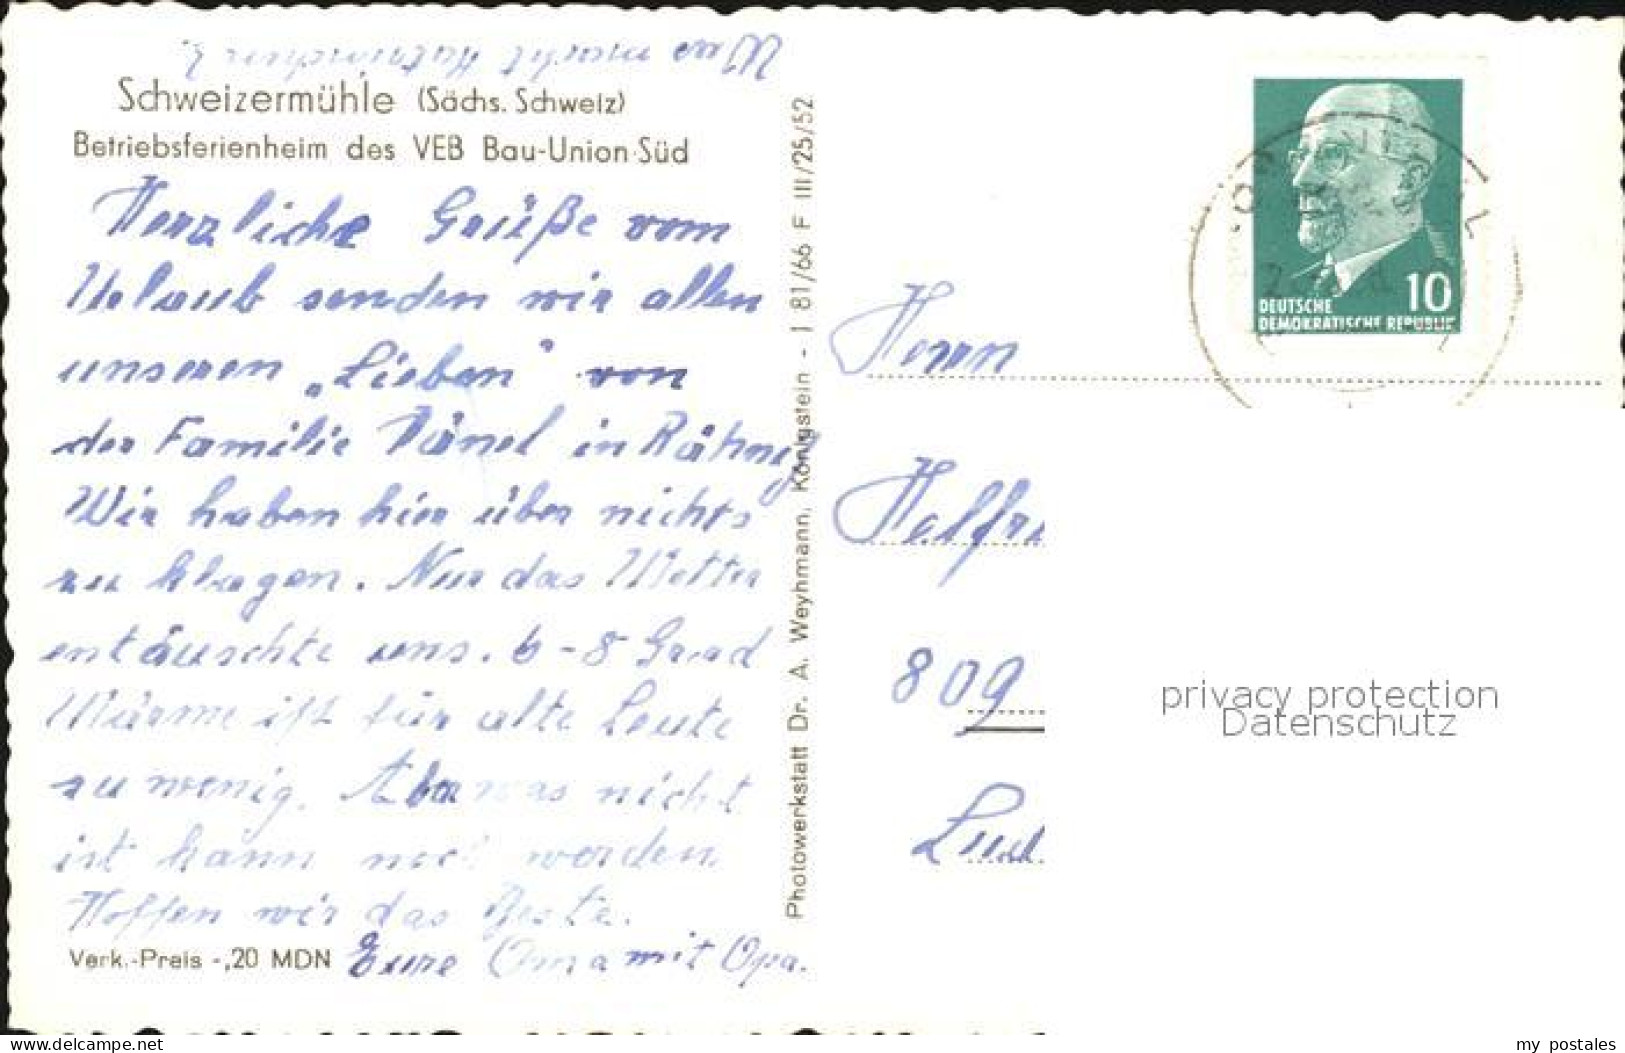 Schweizermühle (Sächs. Schweiz)
Betriebsferienheim des VEB Bau-Union-Süd
Herzliche Grüße vom
Urlaub senden wir allen
unseren „Lieben" von
der Familie Hänel in
Wir haben hier über nichts
zu klagen. Nur das Wetter
entäuschte uns. 6-8 Grad
Wärme ist für alte Leute
zu wenig. Aber was nicht
ist kann noch werden
Hoffen wir das Beste.
Verk.-Preis -,20 MDN Eure Oma mit Opa.
Was macht
Photowerkstatt Dr. A. Weyhmann, Königstein - J 81/66 F III/25/52
10
DEUTSCHE
DEMOKRATISCHE REPUBLIK
Herrn
809
privacy protection
Datenschutz
https://www.delcampe.net
my_postales